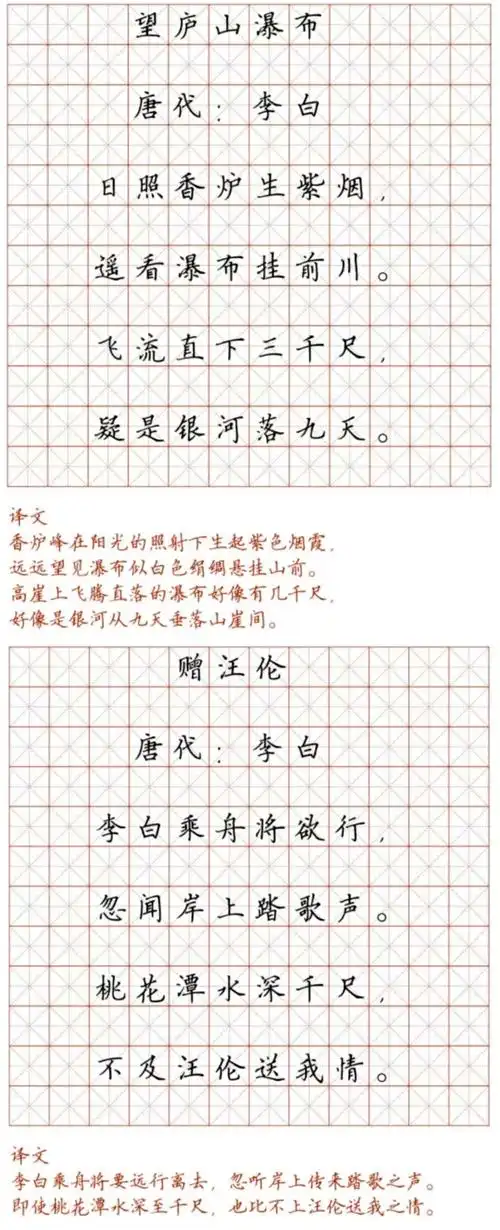 望庐山瀑布
唐代：李白
日照香炉生紫烟，
遥看瀑布挂前川。
飞流直下三千尺，
疑是银河落九天。
译文
香炉峰在阳光的照射下生起紫色烟霞，
远远望见瀑布似白色绢绸悬挂山前。
高崖上飞腾直落的瀑布好像有几千尺，
好像是银河从九天垂落山崖间。
赠汪伦
唐代：李白
李白乘舟将欲行，
忽闻岸上踏歌声。
桃花潭水深千尺，
不及汪伦送我情。
译文
李白乘舟将要远行离去，忽听岸上传来踏歌之声。
即使桃花潭水深至千尺，也比不上汪伦送我之情。